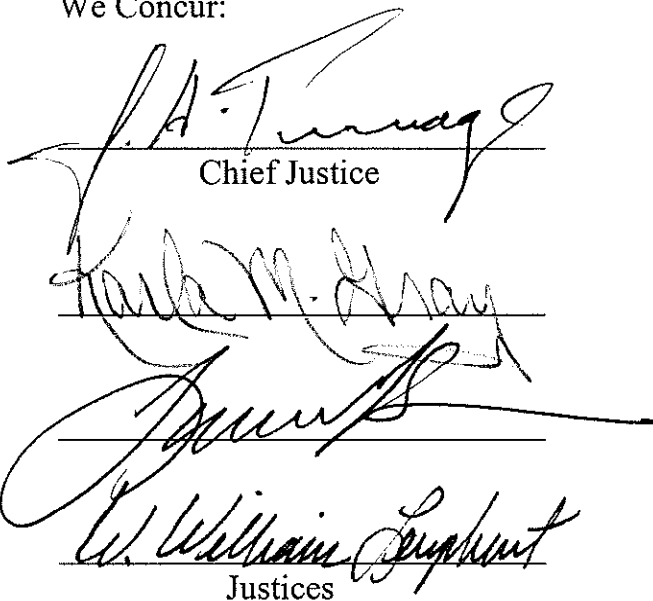 We Concur:
J. A. Turnage
Chief Justice
Karla M. Gray
W. William Leaphart
Justices